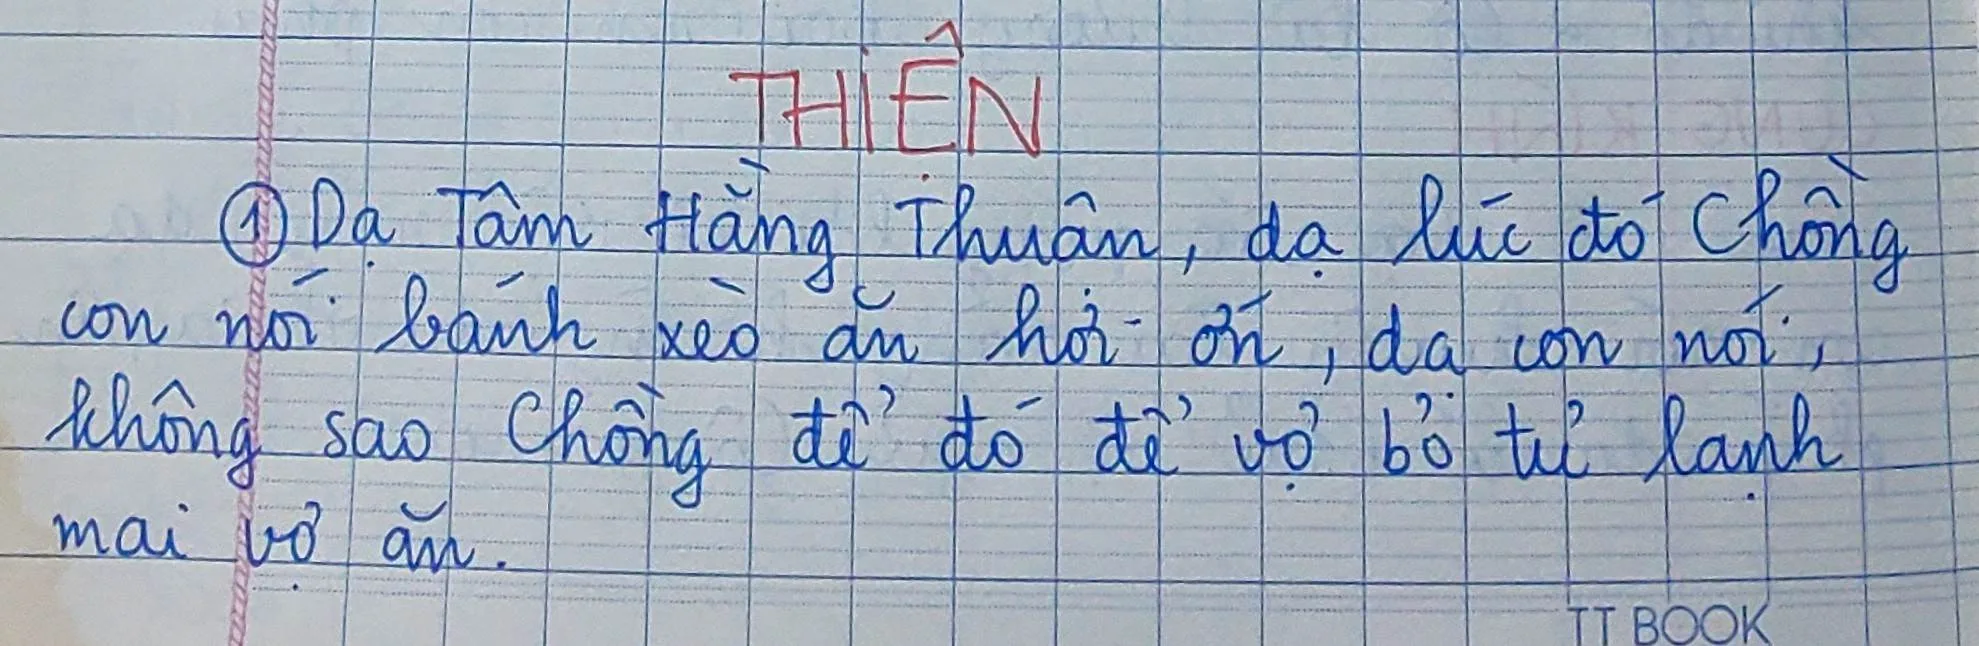 THIỆN
① Dạ Tâm Hằng Thuận, dạ lúc đó Chồng
con nói bánh xèo ăn hỏi ớn, dạ con nói,
không sao Chồng để đó để vợ bỏ tủ lạnh
mai vợ ăn.
TT BOOK